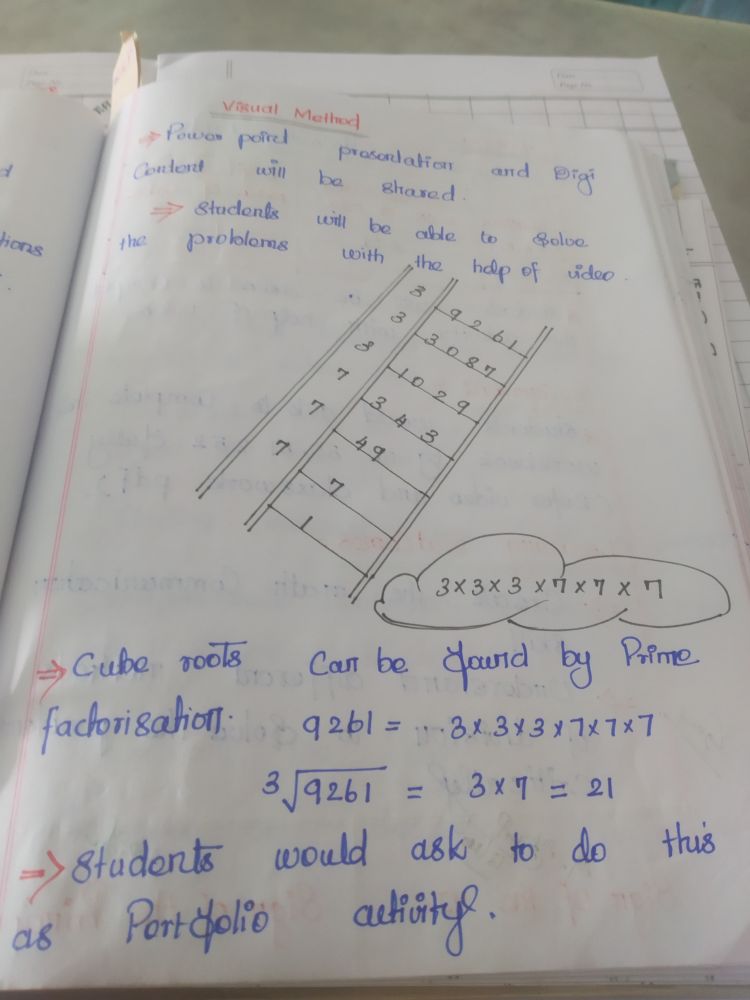 Visual Method
⇒ Power point presentation and Digi
Content will be shared.
⇒ Students will be able to Solve
the problems with the help of video.
3 9261
3 3087
3 1029
7 343
7 49
7 7
1
3×3×3×7×7×7
⇒ Cube roots Can be found by Prime
factorisation. 9261 = 3×3×3×7×7×7
3√9261 = 3×7 = 21
⇒ Students would ask to do this
as Portfolio activity.
d
tions